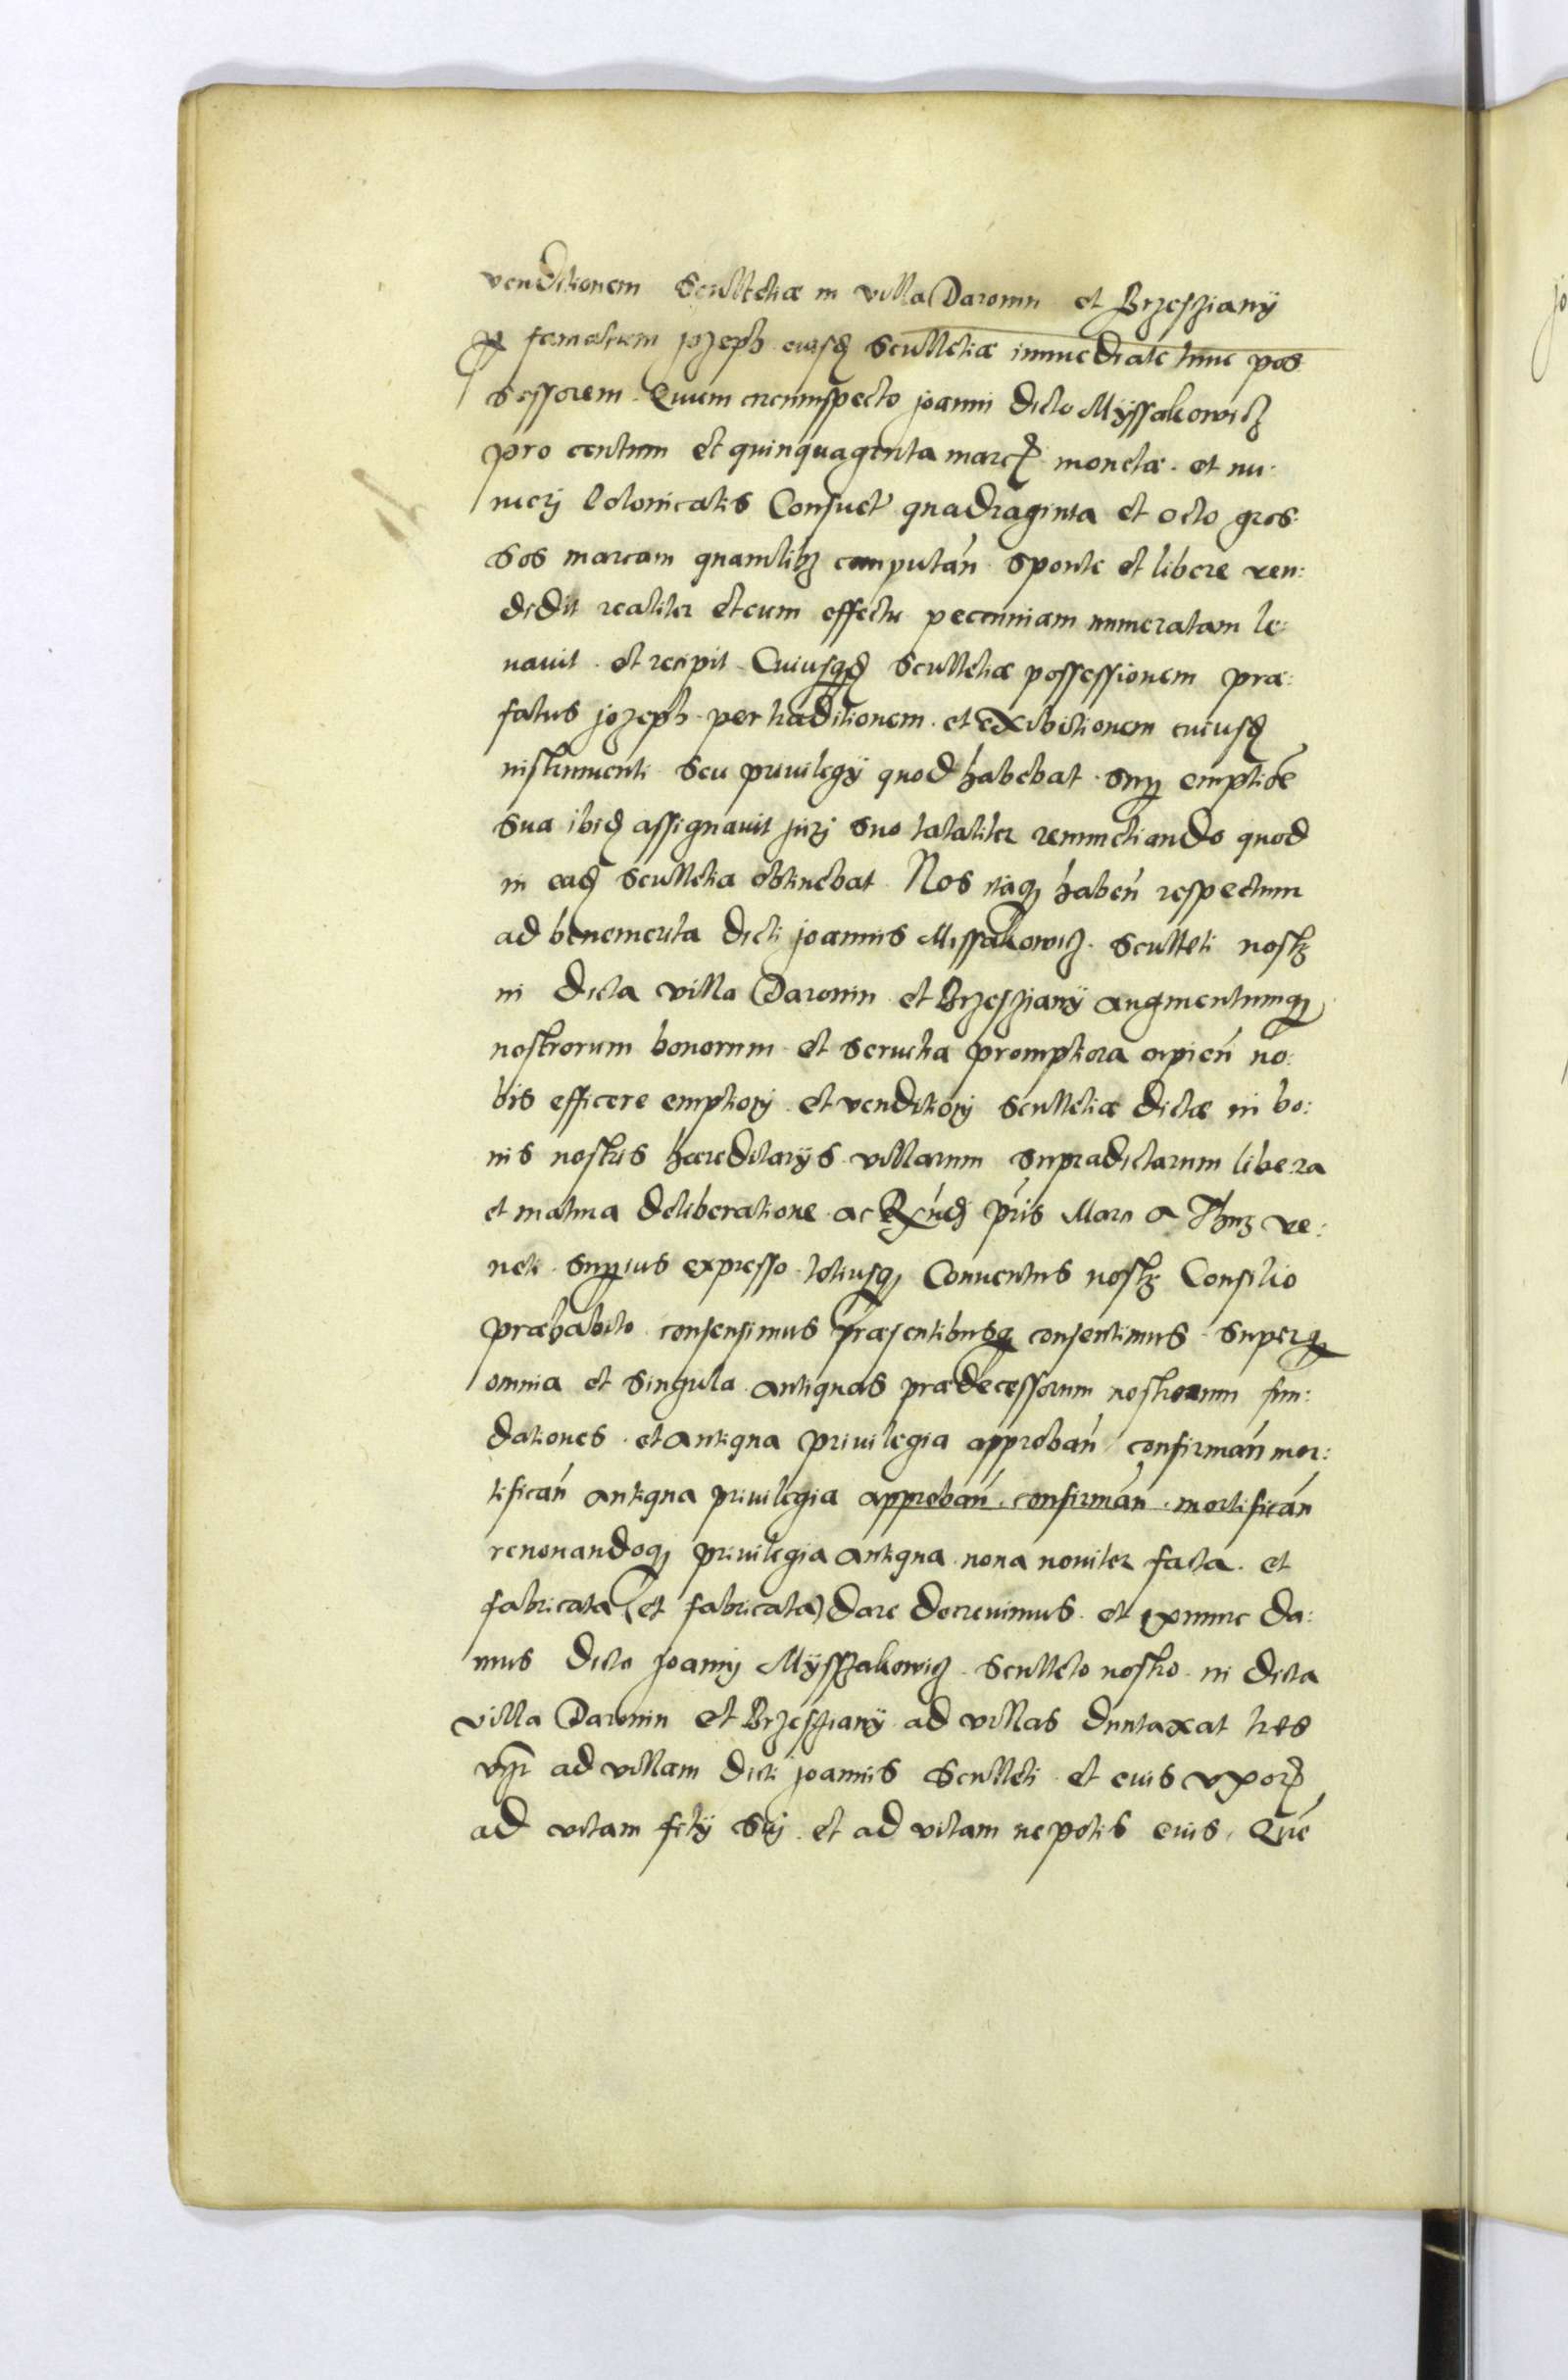 venditionem Scultetiæ in villa Daromin et Brzessziany
p famatum jozeph eiusd Scultetiæ immediate tunc pos
sessorem. Quem circumspecto joanni dicto Myssakowicz
pro centum et quinquaginta marc. monetæ. et nu:
merj Polonicalis Consuet quadraginta et octo gros:
sos marcam quamlibz computan sponte et libere ven:
didit realiter et cum effectu pecuniam numeratam le:
uauit. et recipit. Cuiusquid Scultetiæ possessionem præ:
fatus jozeph. per traditionem. et exibitionem cuiusd
instrumenti seu priuilegij quod habebat. sup emptione
sua ibid assignauit jurj suo totaliter renunctiando quod
in ead scultetia obtinebat. Nos itaq haben respectum
ad benemerita dicti joannis Missakowicz. Sculteti nostri
in dicta villa Daromin et Brzessziany augmentumq
nostrorum bonorum et seruitia promptiora cupien no:
bis efficere emptiorj et venditiorj scultetiæ dictæ in bo:
nis nostris hæreditarijs villarum supradictarum libera
et matura deliberatione. ac Rxnd pris Marci a ve:
neti. superius expresso. totiusq Conuentus nostri Consilio
præhabito consensimus præsentibusq consentimus. superq
omnia et singula antiquas prædecessorum nostrorum fun:
dationes. et antiqua priuilegia approban confirman mor:
tifican antiqua priuilegia approban. confirman. mortifican
renouandoq priuilegia antiqua. noua nouiter facta. et
fabricata (et fabricata) dare decreuimus. et exnunc da:
mus dicto joannj Mysszakowicz. Sculteto nostro. in dicta
villa Daromin et Brzessziany ad villas duntaxat tres
vzt ad villam dicti joannis Sculteti. et eius vxor
ad vitam filij suj. et ad vitam nepotis eius, Que